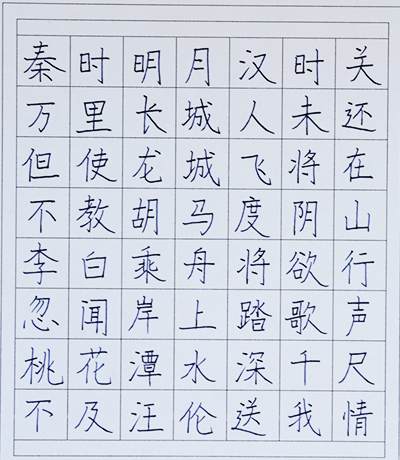 秦时明月汉时关
万里长城人未还
但使龙城飞将在
不教胡马度阴山
李白乘舟将欲行
忽闻岸上踏歌声
桃花潭水深千尺
不及汪伦送我情